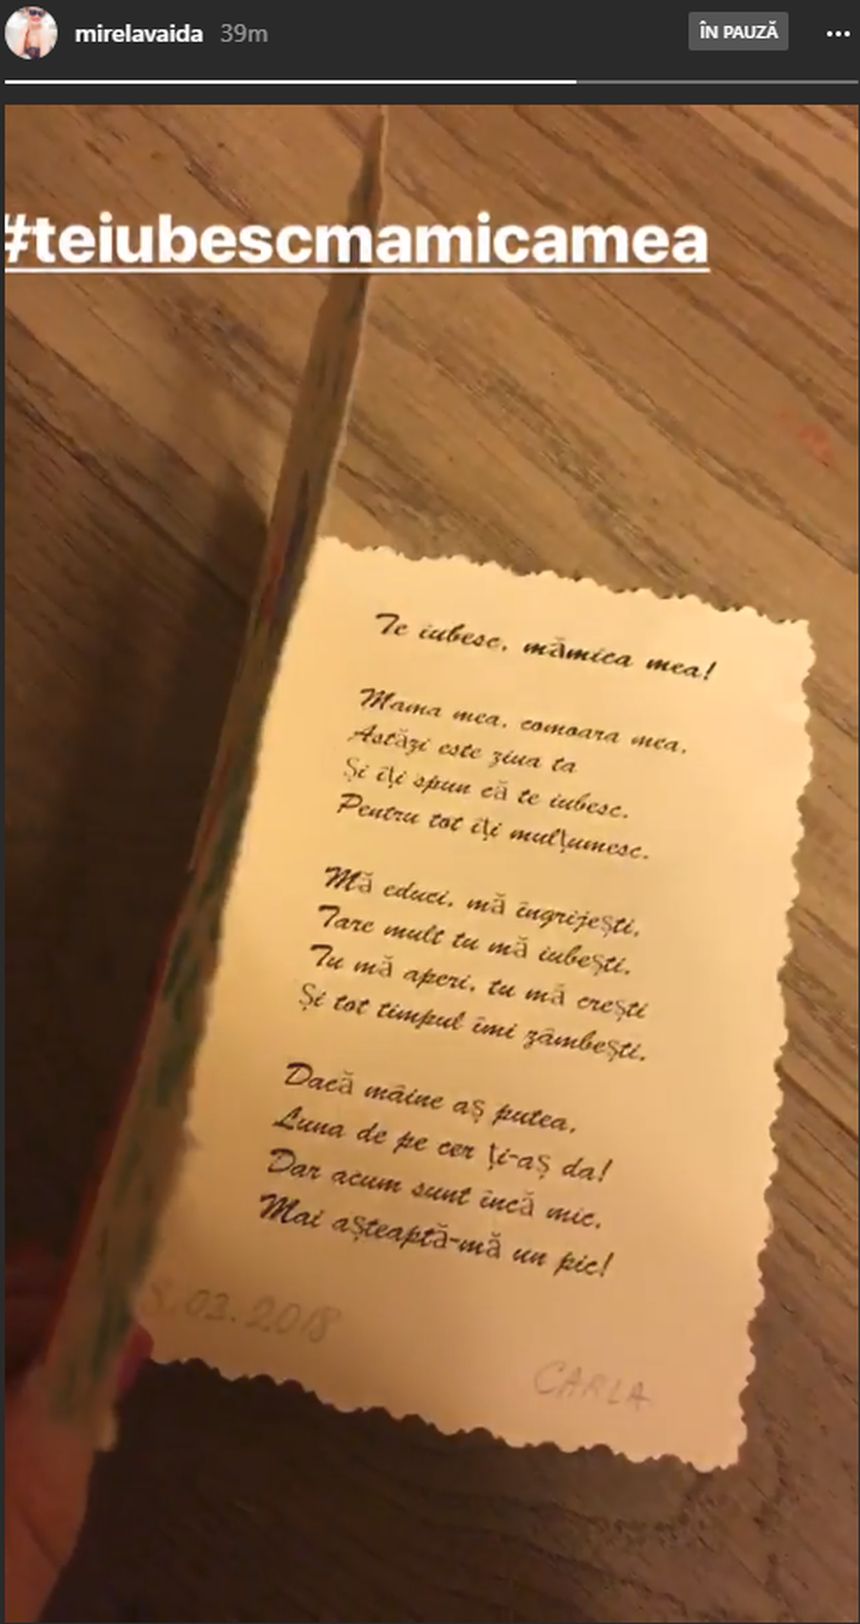 mirelavaida 39m
ÎN PAUZĂ
#teiubescmamicamea
Te iubesc, mămica mea!
Mama mea, comoara mea,
Astăzi este ziua ta
Și îți spun că te iubesc.
Pentru tot îți mulțumesc.
Mă educi, mă îngrijești,
Tare mult tu mă iubești.
Tu mă aperi, tu mă crești
Și tot timpul îmi zâmbești.
Dacă mâine aș putea,
Luna de pe cer ți-aș da!
Dar acum sunt încă mic,
Mai așteaptă-mă un pic!
8.03.2018
CARLA